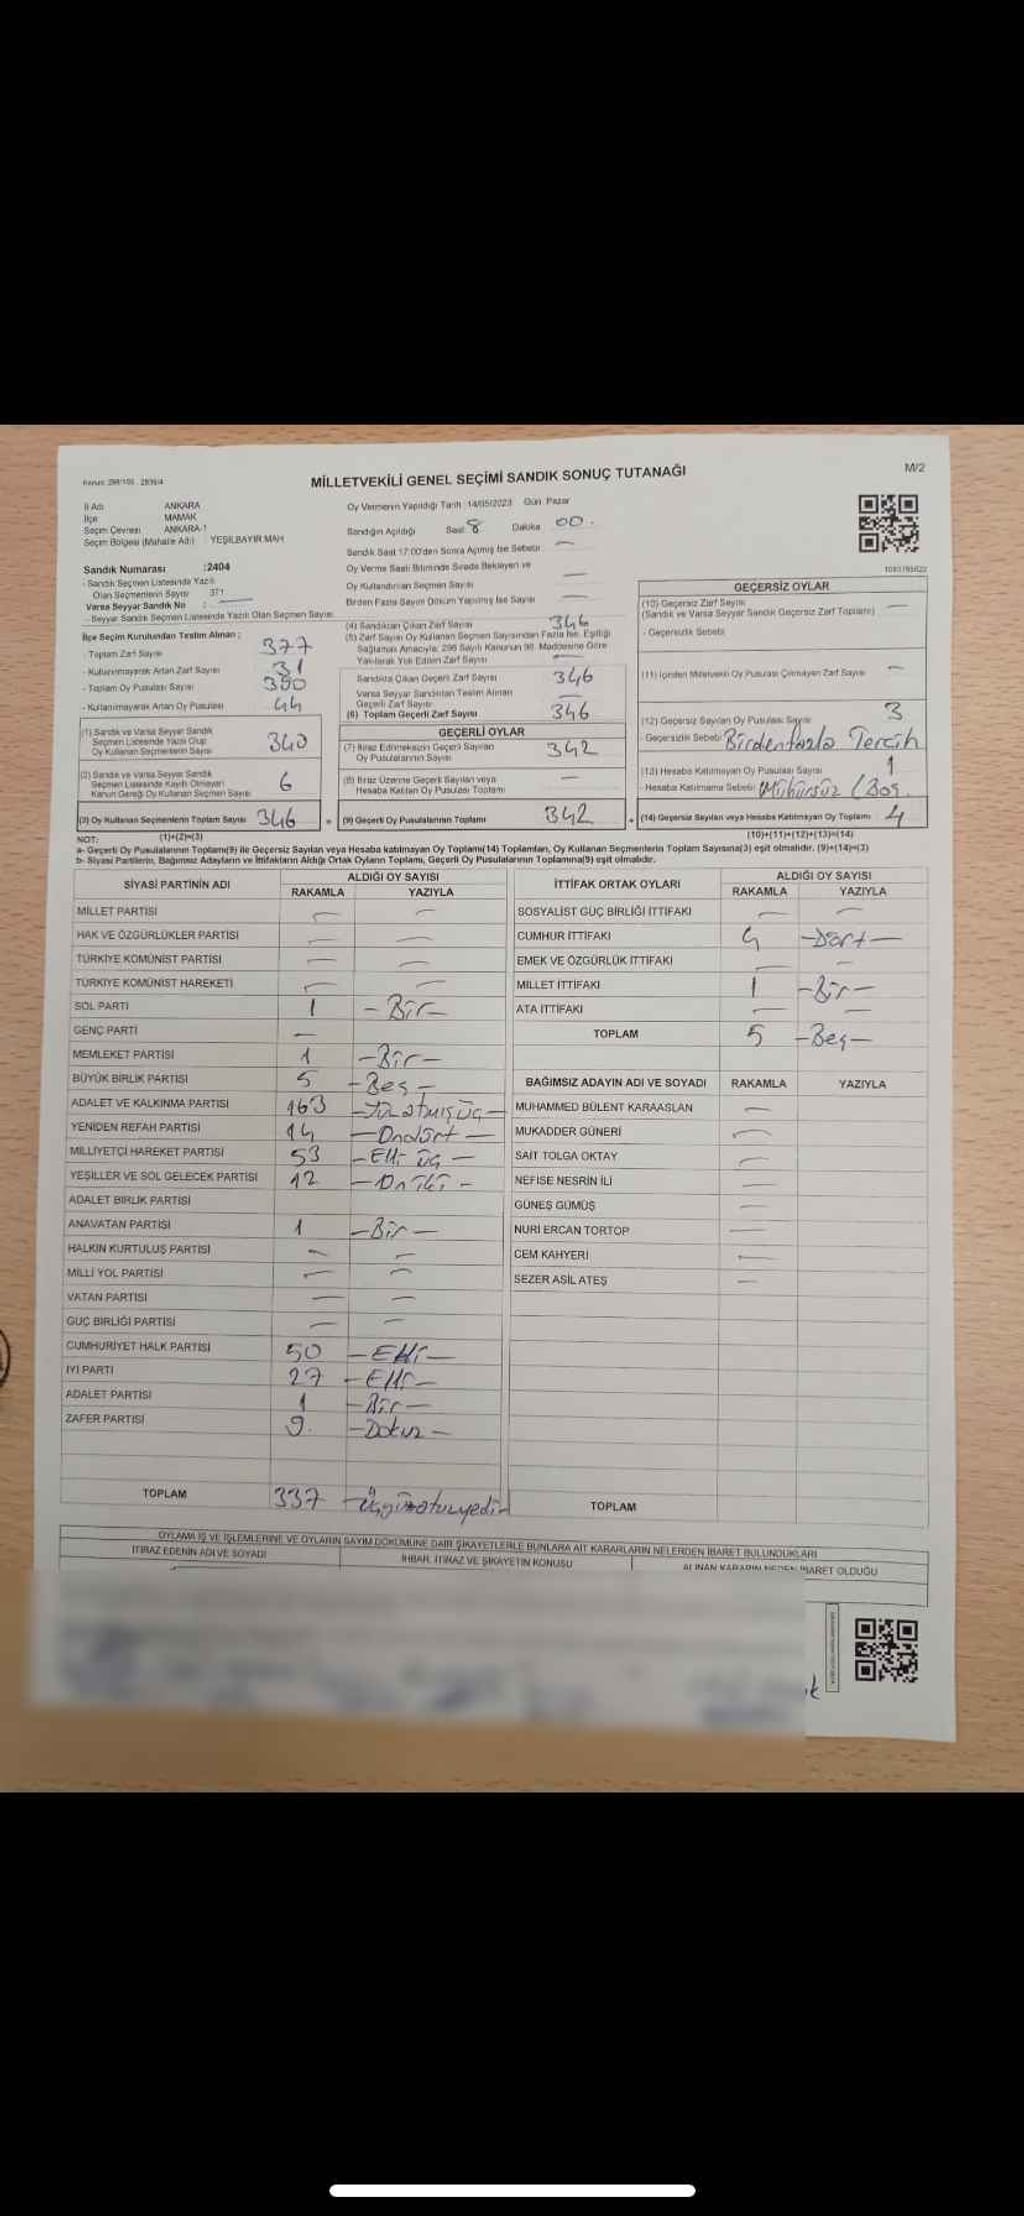 Kanun: 298/105 - 2839/4
MİLLETVEKİLİ GENEL SEÇİMİ SANDIK SONUÇ TUTANAĞI
M/2
İl Adı ANKARA
İlçe MAMAK
Seçim Çevresi ANKARA-1
Seçim Bölgesi (Mahalle Adı) YEŞİLBAYIR MAH
Sandık Numarası :2404
- Sandık Seçmen Listesinde Yazılı
Olan Seçmenlerin Sayısı 371
Varsa Seyyar Sandık No :
- Seyyar Sandık Seçmen Listesinde Yazılı Olan Seçmen Sayısı
İlçe Seçim Kurulundan Teslim Alınan :
- Toplam Zarf Sayısı 377
- Kullanılmayarak Artan Zarf Sayısı 31
- Toplam Oy Pusulası Sayısı 390
- Kullanılmayarak Artan Oy Pusulası 44
(1) Sandık ve Varsa Seyyar Sandık
Seçmen Listesinde Yazılı Olup
Oy Kullanan Seçmenlerin Sayısı 340
(2) Sandık ve Varsa Seyyar Sandık
Seçmen Listesinde Kayıtlı Olmayan
Kanun Gereği Oy Kullanan Seçmen Sayısı 6
(3) Oy Kullanan Seçmenlerin Toplam Sayısı 346 =
(1)+(2)=(3)
Oy Vermenin Yapıldığı Tarih :14/05/2023 Gün: Pazar
Sandığın Açıldığı Saat 8 Dakika 00.
Sandık Saat 17:00'den Sonra Açılmış İse Sebebi —
Oy Verme Saati Bitiminde Sırada Bekleyen ve
Oy Kullandırılan Seçmen Sayısı —
Birden Fazla Sayım Döküm Yapılmış İse Sayısı —
(4) Sandıktan Çıkan Zarf Sayısı 346
(5) Zarf Sayısı Oy Kullanan Seçmen Sayısından Fazla İse, Eşitliği
Sağlamak Amacıyla, 298 Sayılı Kanunun 98. Maddesine Göre
Yakılarak Yok Edilen Zarf Sayısı —
Sandıkta Çıkan Geçerli Zarf Sayısı 346
Varsa Seyyar Sandıktan Teslim Alınan
Geçerli Zarf Sayısı —
(6) Toplam Geçerli Zarf Sayısı 346
GEÇERLİ OYLAR
(7) İtiraz Edilmeksizin Geçerli Sayılan
Oy Pusulalarının Sayısı 342
(8) İtiraz Üzerine Geçerli Sayılan veya
Hesaba Katılan Oy Pusulası Toplamı —
(9) Geçerli Oy Pusulalarının Toplamı 342 +
GEÇERSİZ OYLAR
(10) Geçersiz Zarf Sayısı
(Sandık ve Varsa Seyyar Sandık Geçersiz Zarf Toplamı) —
- Geçersizlik Sebebi
(11) İçinden Milletvekili Oy Pusulası Çıkmayan Zarf Sayısı —
(12) Geçersiz Sayılan Oy Pusulası Sayısı 3
- Geçersizlik Sebebi Birden fazla Tercih
(13) Hesaba Katılmayan Oy Pusulası Sayısı 1
Hesaba Katılmama Sebebi Mühürsüz / Boş.
(14) Geçersiz Sayılan veya Hesaba Katılmayan Oy Toplamı 4
(10)+(11)+(12)+(13)=(14)
NOT:
a- Geçerli Oy Pusulalarının Toplamı(9) ile Geçersiz Sayılan veya Hesaba katılmayan Oy Toplamı(14) Toplamları, Oy Kullanan Seçmenlerin Toplam Sayısına(3) eşit olmalıdır. (9)+(14)=(3)
b- Siyasi Partilerin, Bağımsız Adayların ve İttifakların Aldığı Ortak Oyların Toplamı, Geçerli Oy Pusulalarının Toplamına(9) eşit olmalıdır.
SİYASİ PARTİNİN ADI ALDIĞI OY SAYISI
RAKAMLA YAZIYLA
MİLLET PARTİSİ — —
HAK VE ÖZGÜRLÜKLER PARTİSİ — —
TÜRKİYE KOMÜNİST PARTİSİ — —
TÜRKİYE KOMÜNİST HAREKETİ — —
SOL PARTİ 1 -Bir-
GENÇ PARTİ —
MEMLEKET PARTİSİ 1 -Bir-
BÜYÜK BİRLİK PARTİSİ 5 -Beş-
ADALET VE KALKINMA PARTİSİ 163 -Yüzatmışüç-
YENİDEN REFAH PARTİSİ 14 -Ondört-
MİLLİYETÇİ HAREKET PARTİSİ 53 -Elli üç-
YEŞİLLER VE SOL GELECEK PARTİSİ 12 -Oniki-
ADALET BİRLİK PARTİSİ
ANAVATAN PARTİSİ 1 -Bir-
HALKIN KURTULUŞ PARTİSİ — —
MİLLİ YOL PARTİSİ — —
VATAN PARTİSİ — —
GÜÇ BİRLİĞİ PARTİSİ — —
CUMHURİYET HALK PARTİSİ 50 -Elli-
İYİ PARTİ 27 -Elli-
ADALET PARTİSİ 1 -Bir-
ZAFER PARTİSİ 9. -Dokuz-
TOPLAM 337 -Üçyüzotuzyedi-
İTTİFAK ORTAK OYLARI ALDIĞI OY SAYISI
RAKAMLA YAZIYLA
SOSYALİST GÜÇ BİRLİĞİ İTTİFAKI — —
CUMHUR İTTİFAKI 4 -Dört-
EMEK VE ÖZGÜRLÜK İTTİFAKI — —
MİLLET İTTİFAKI 1 -Bir-
ATA İTTİFAKI — —
TOPLAM 5 -Beş-
BAĞIMSIZ ADAYIN ADI VE SOYADI RAKAMLA YAZIYLA
MUHAMMED BÜLENT KARAASLAN —
MUKADDER GÜNERİ —
SAİT TOLGA OKTAY —
NEFİSE NESRİN İLİ —
GÜNEŞ GÜMÜŞ —
NURİ ERCAN TORTOP —
CEM KAHYERİ —
SEZER ASİL ATEŞ —
TOPLAM
OYLAMA İŞ VE İŞLEMLERİNE VE OYLARIN SAYIM DÖKÜMÜNE DAİR ŞİKAYETLERLE BUNLARA AİT KARARLARIN NELERDEN İBARET BULUNDUKLARI
İTİRAZ EDENİN ADI VE SOYADI İHBAR, İTİRAZ VE ŞİKAYETİN KONUSU ALINAN KARARIN NEDEN İBARET OLDUĞU